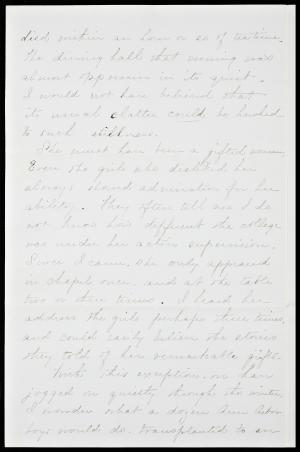 died within an hour or so of tea time.
The dining hall that evening was
almost oppressive in its quiet.
I would not have believed that
its usual clatter could be hushed
to such stillness.
She must have been a gifted woman.
Even the girls who disliked her
always shared admiration for her
ability. They often tell me I do
not know how different the college
was under her active supervision.
Since I came, she only appeared
in chapel once, and at the table
two or three times. I heard her
address the girls perhaps three times,
and could easily believe the stories
they told of her remarkable gifts.
With this exception, we have
jogged on quietly through the winter.
I wonder what a dozen Ann Arbor
boys would do, transplanted to an